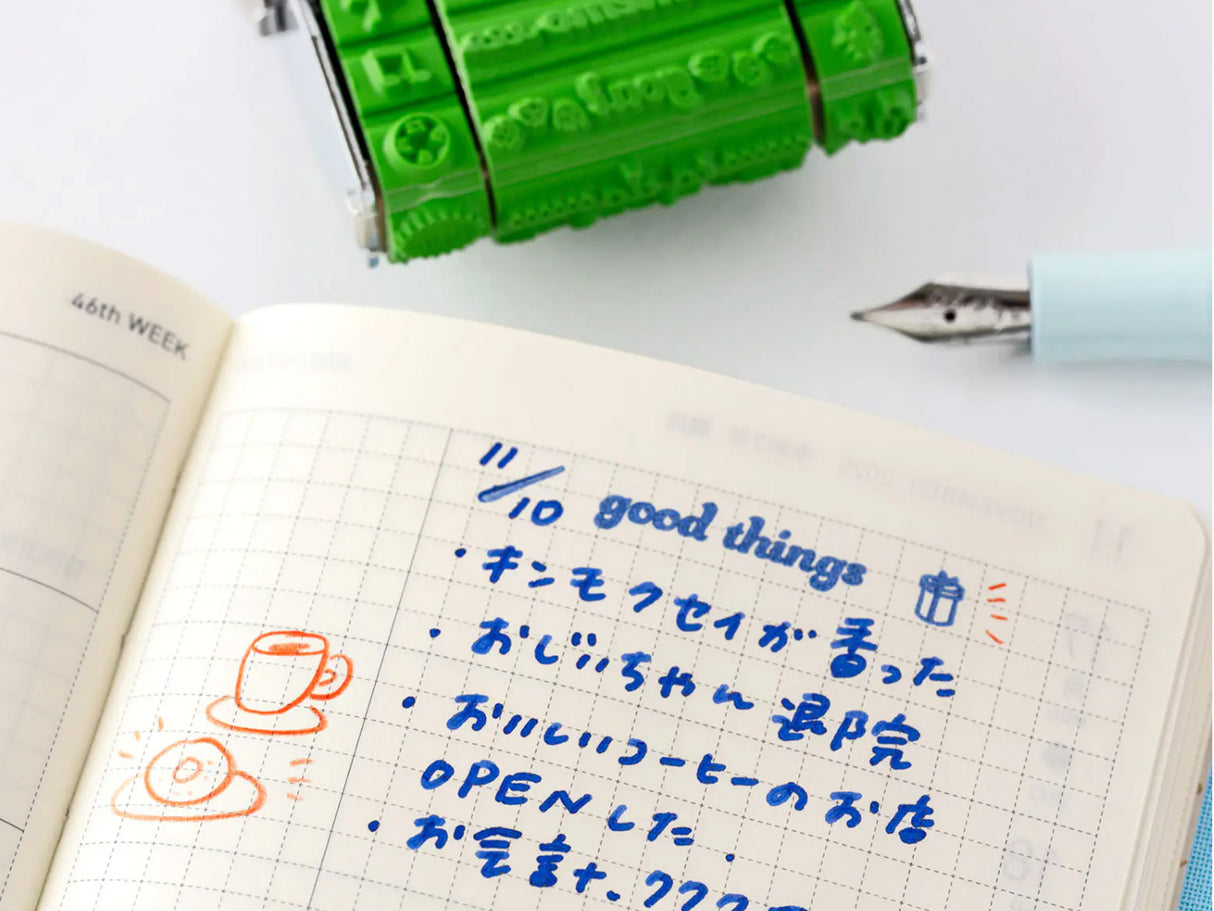 46th WEEK
11/10 good things
・キンモクセイが香った
・おじいちゃん退院
・おいしいコーヒーのお店
OPENした.
・お会計が、777